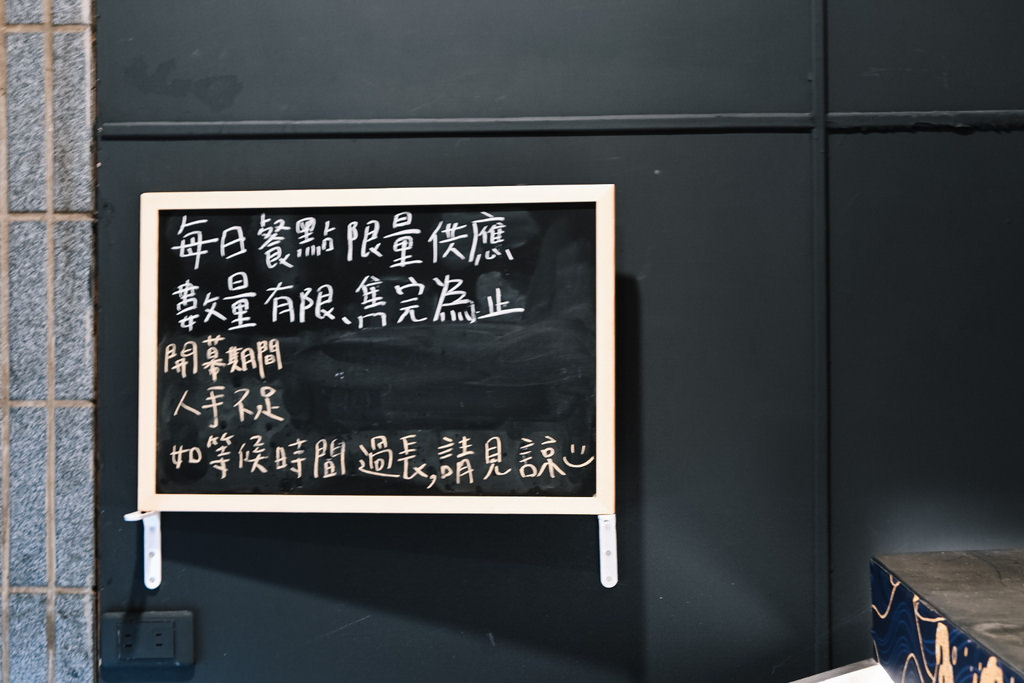 每日餐點限量供應
數量有限、售完為止
開幕期間
人手不足
如等候時間過長,請見諒